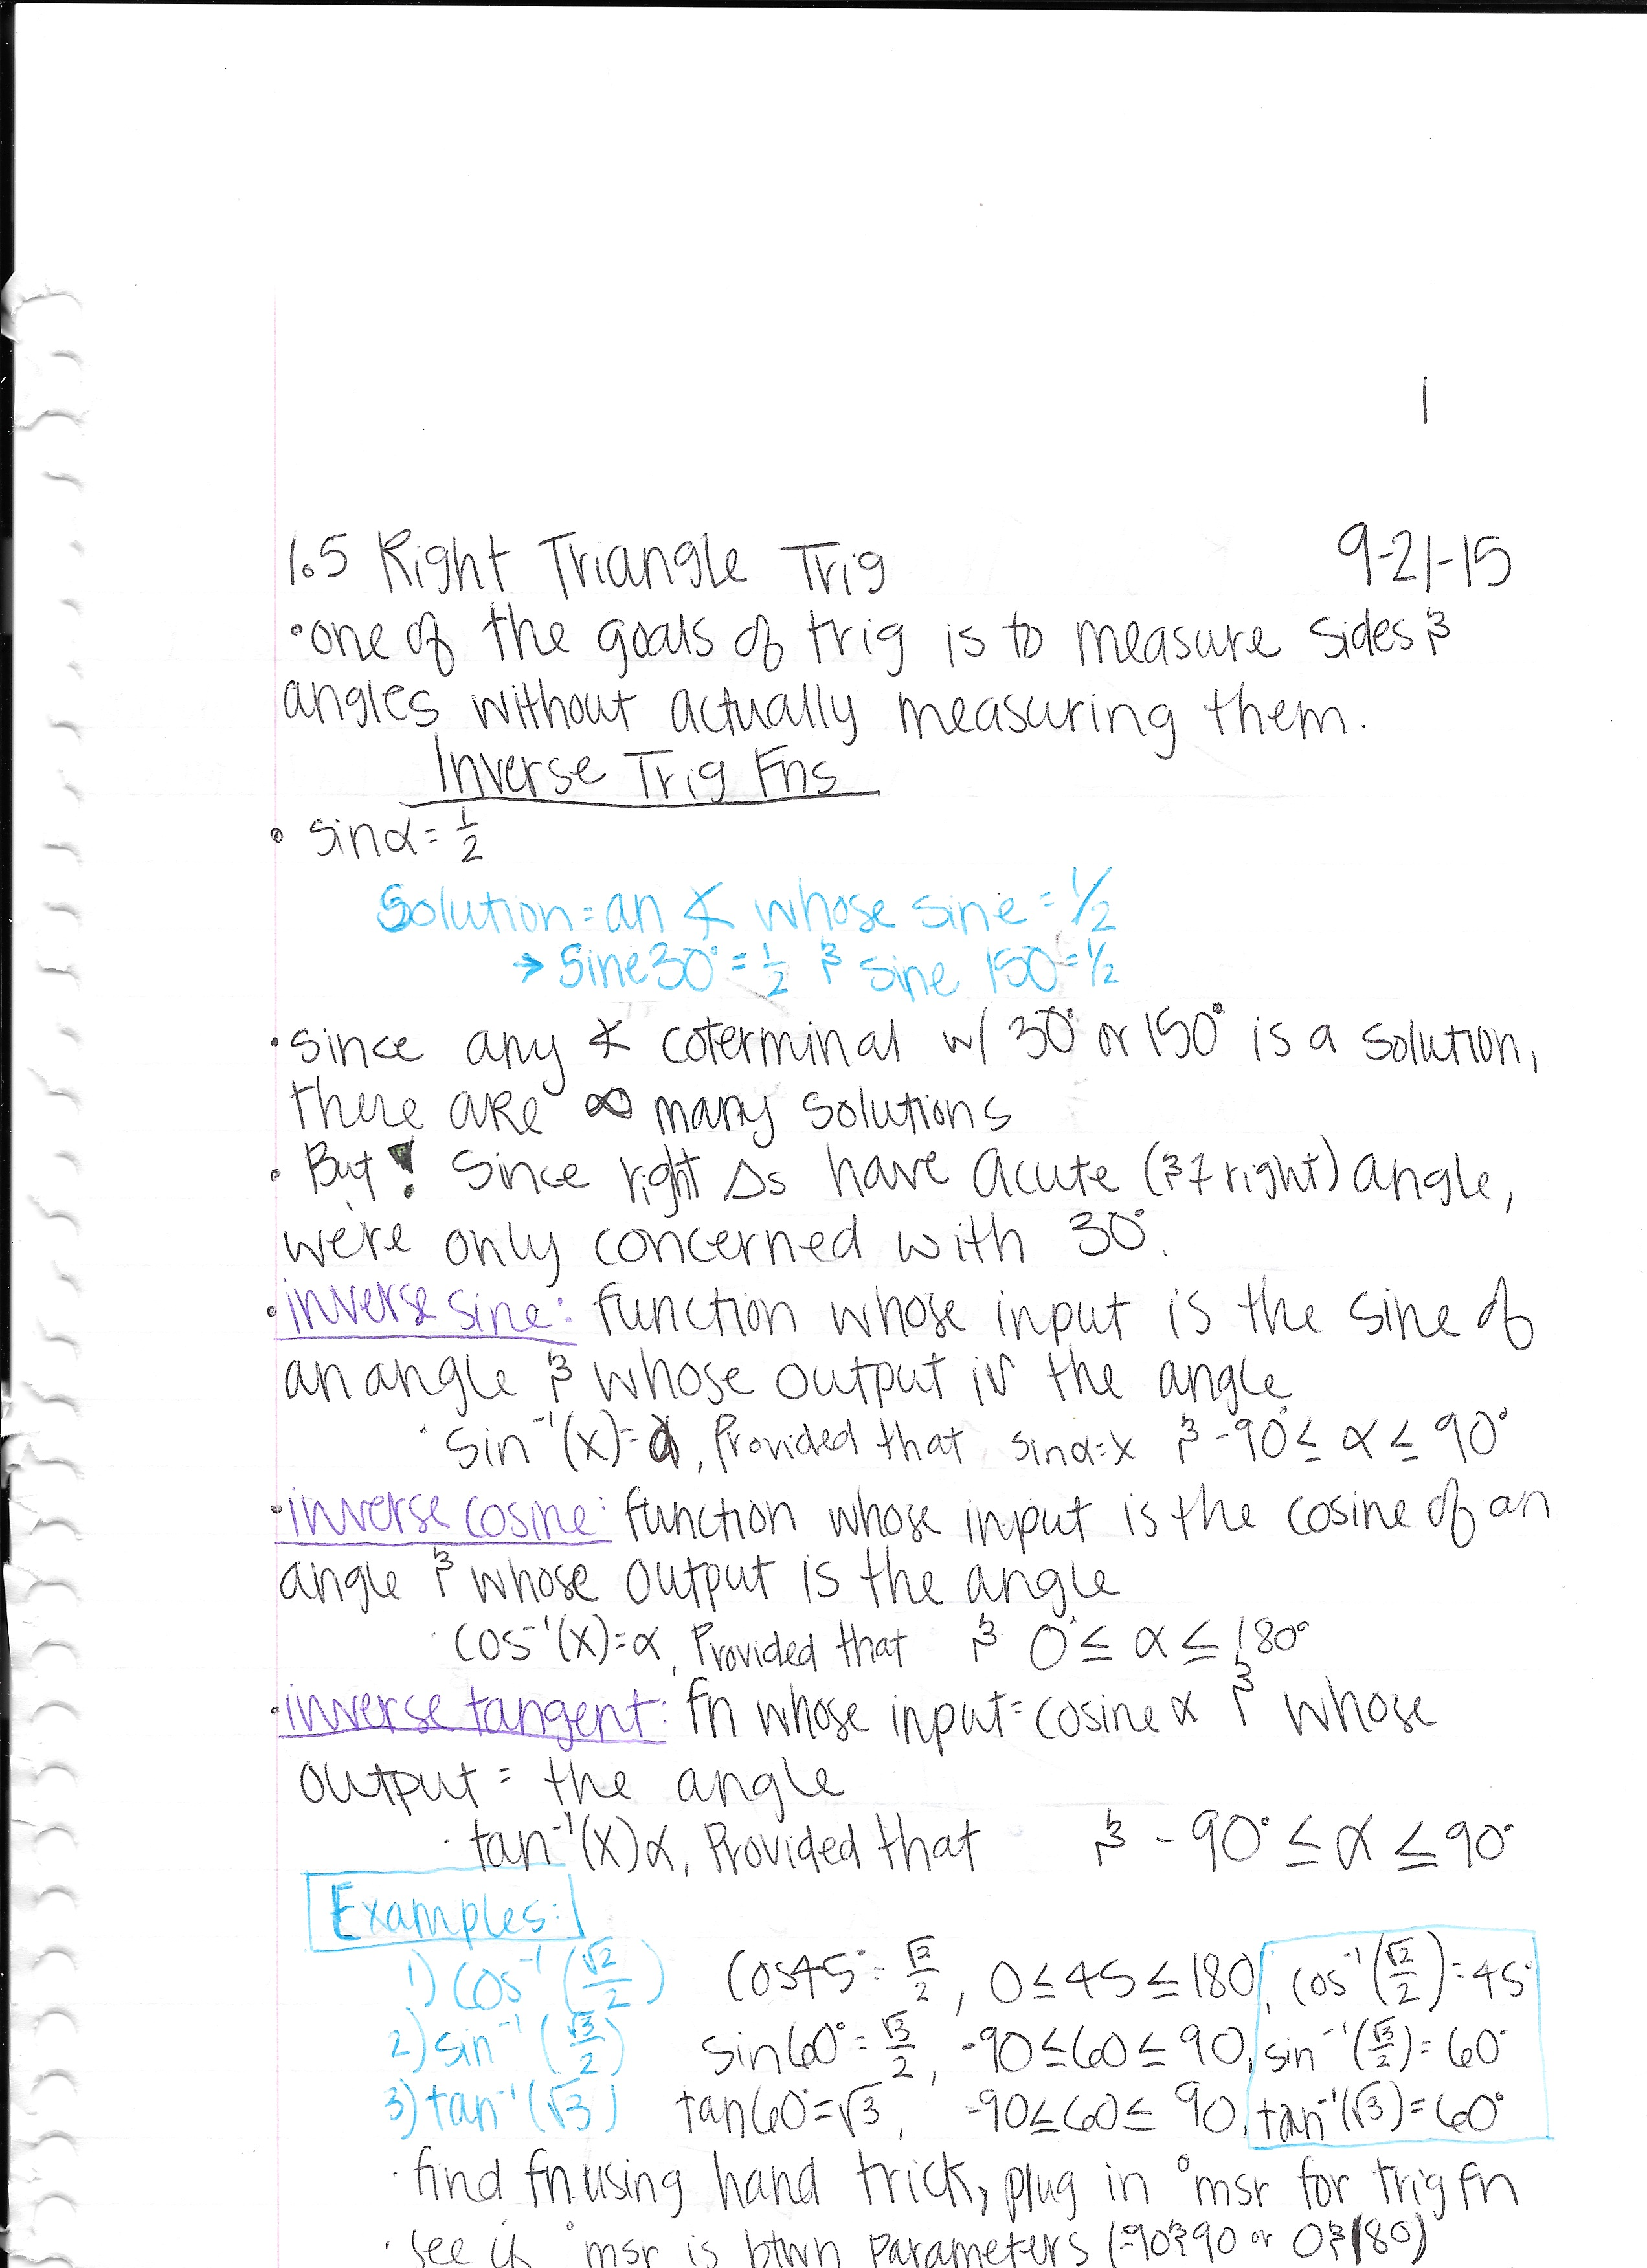 1
1.5 Right Triangle Trig 9-21-15
•one of the goals of trig is to measure sides &
angles without actually measuring them.
Inverse Trig Fns
• sinα=1/2
Solution=an ∡ whose sine=1/2
→ Sine30°=1/2 & sine 150°=1/2
•since any ∡ coterminal w/ 30° or 150° is a solution,
there are ∞ many solutions
• But! Since right Δs have acute (& 1 right) angle,
we're only concerned with 30°.
•inverse sine: function whose input is the sine of
an angle & whose output is the angle
•sin⁻¹(x)=α, Provided that sinα=x & -90°≤ α ≤ 90°
•inverse cosine: function whose input is the cosine of an
angle & whose output is the angle
•cos⁻¹(x)=α, Provided that & 0°≤ α ≤ 180°
•inverse tangent: fn whose input=cosine α & whose
output = the angle
•tan⁻¹(x)α, Provided that & -90° ≤ α ≤ 90°
Examples:
1) cos⁻¹(√2/2) Cos45°=√2/2, 0≤45≤180, cos⁻¹(√2/2)=45°
2) sin⁻¹(√3/2) sin60°=√3/2, -90≤60≤90, sin⁻¹(√3/2)=60°
3) tan⁻¹(√3) tan60°=√3, -90≤60≤90, tan⁻¹(√3)=60°
•find fn using hand trick, plug in °msr for trig fn
•see if °msr is btwn parameters (-90&90 or 0&180)